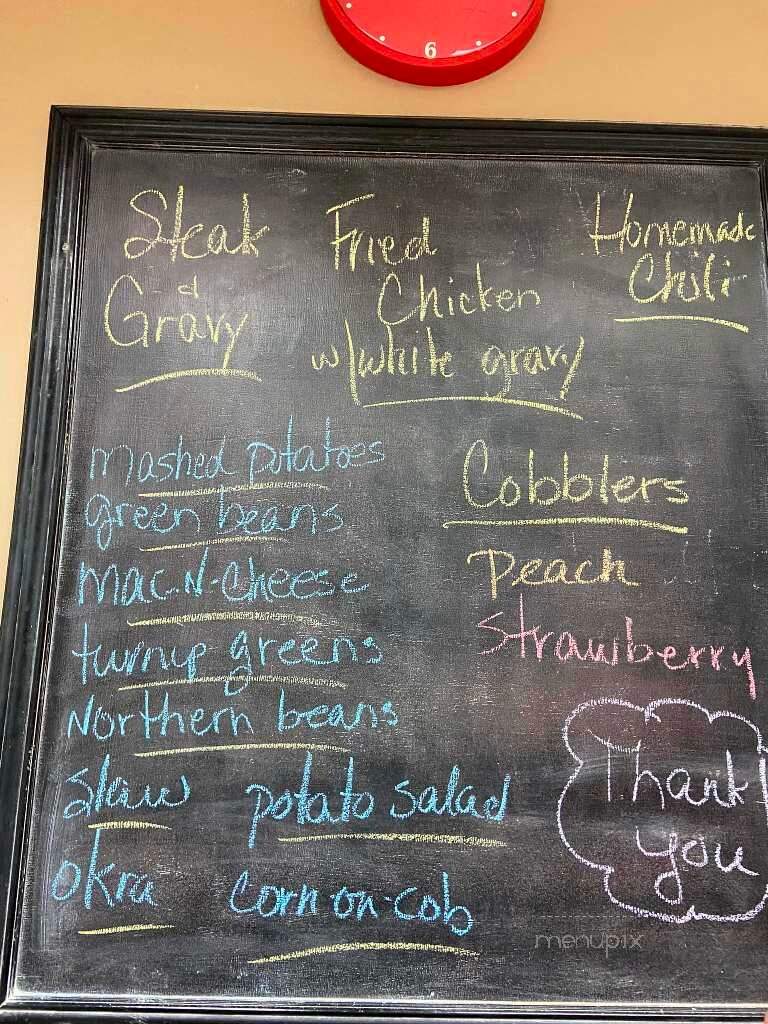 6
Steak
&
Gravy
Fried
Chicken
w/white gravy
Homemade
Chili
mashed potatoes
green beans
Mac-N-Cheese
turnip greens
Northern beans
Slaw
potato salad
okra
corn-on-cob
Cobblers
Peach
Strawberry
Thank
you
menupix